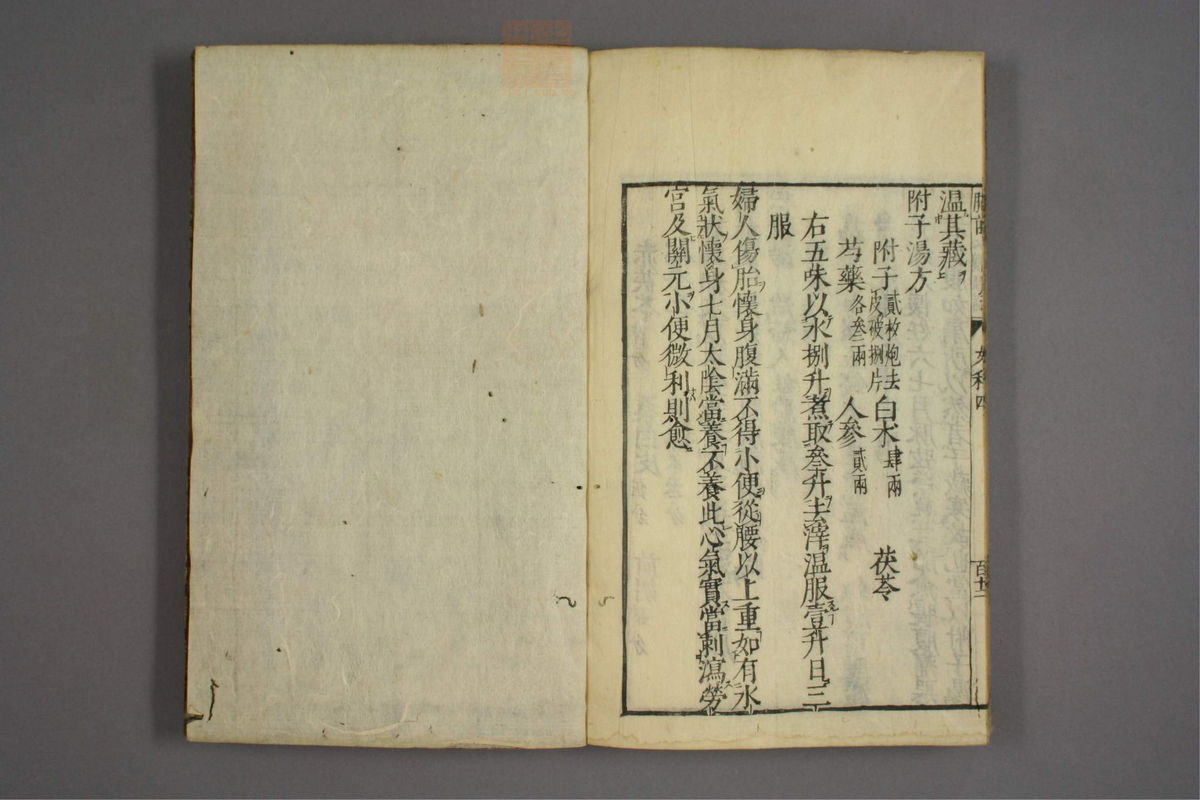 温其藏
附子湯方
附子貳枚炮去皮破捌片 白朮肆兩 茯苓
芍藥各叁兩 人參貳兩
右五味以水捌升煮取叁升去滓温服壹升日三
服
婦人傷胎懷身腹滿不得小便從腰以上重如有水
氣狀懷身七月太陰當養不養此心氣實當刺瀉勞
宮及關元小便微利則愈